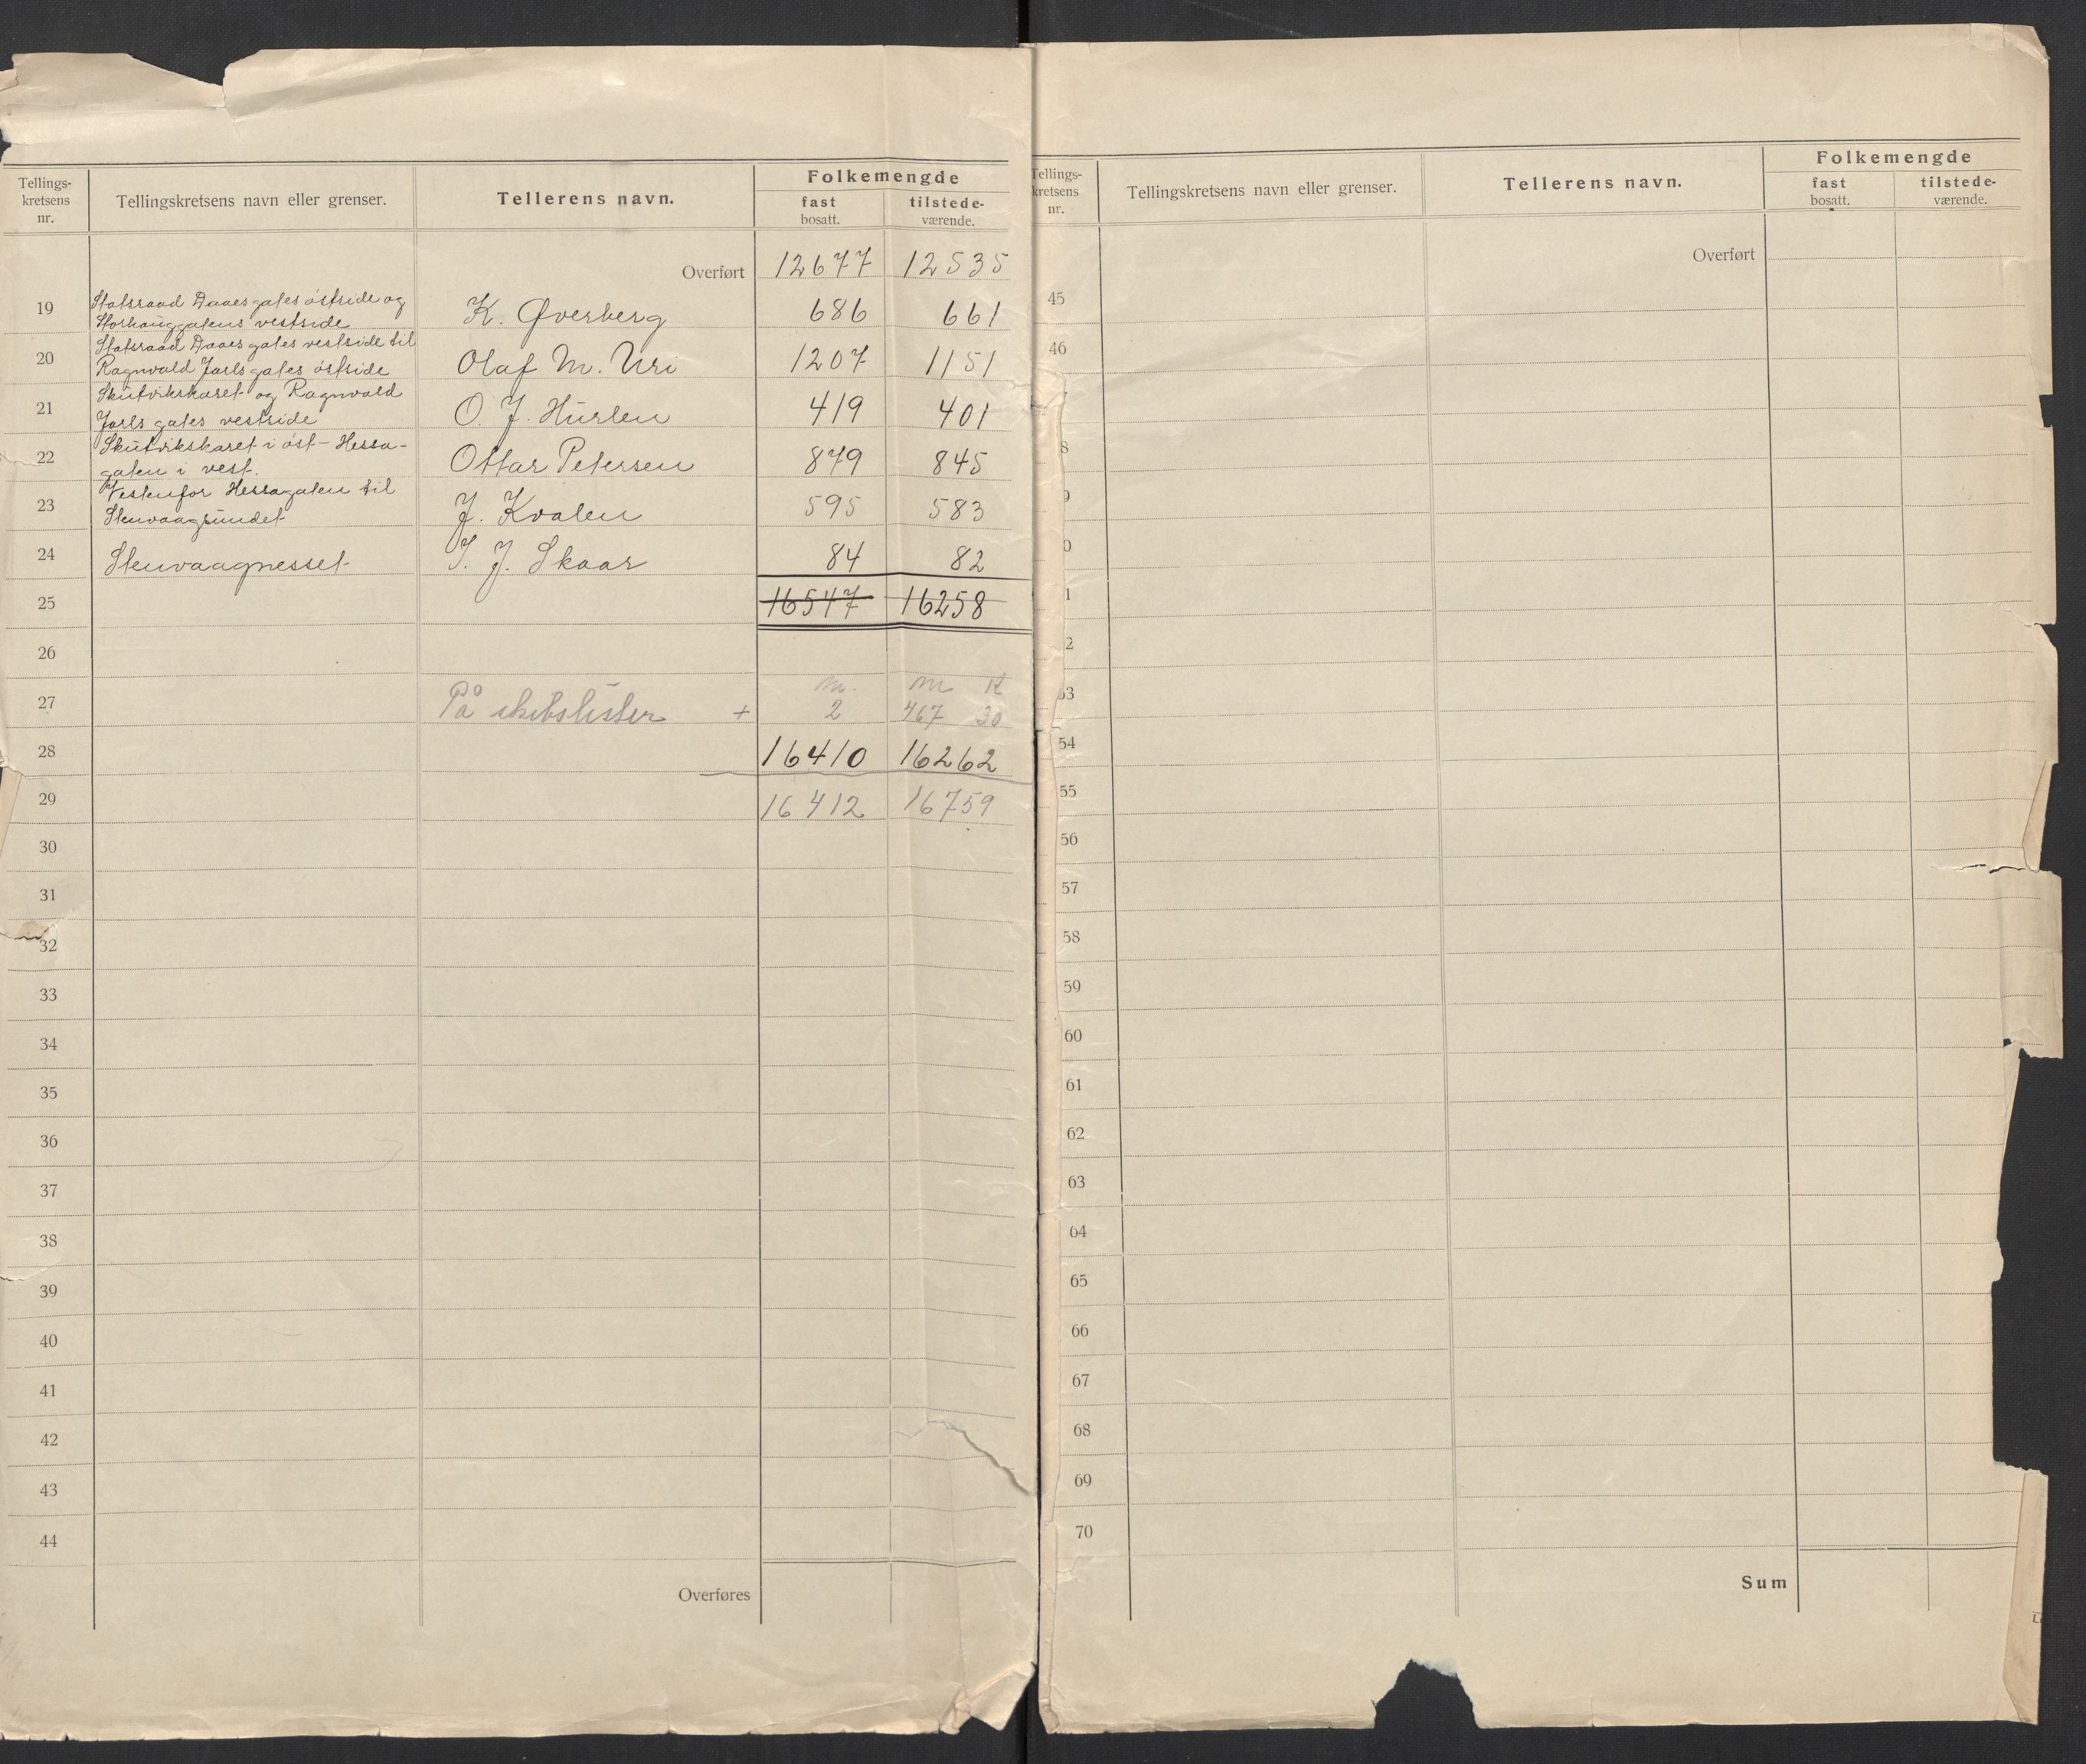 Tellings-
kretsens
nr.
Tellingskretsens navn eller grenser.
Tellerens navn.
Folkemengde
fast
bosatt.
tilstede-
værende.
Overført 12677 12535
19 Statsraad Daaes gates østside og
Storhauggatens vestside K. Øverberg 686 661
20 Statsraad Daaes gates vestside til
Ragnvald Jarls gates østside Olaf M. Uri 1207 1151
21 Skutvikskaret og Ragnvald
Jarls gates vestside O. J. Hurlen 419 401
22 Skutvikskaret i øst - Hessa-
gaten i vest. Ottar Petersen 879 845
23 Vestenfor Hessagaten til
Stenvaagsundet J. Kvalen 595 583
24 Stenvaagnesset J. J. Skaar 84 82
25 16547 16258
26
m. m K
27 På skibslister + 2 467 30
28 16410 16262
29 16412 16759
30
31
32
33
34
35
36
37
38
39
40
41
42
43
44
Overføres
Tellings-
kretsens
nr.
Tellingskretsens navn eller grenser.
Tellerens navn.
Folkemengde
fast
bosatt.
tilstede-
værende.
Overført
45
46
8
9
0
1
2
53
54
55
56
57
58
59
60
61
62
63
64
65
66
67
68
69
70
Sum